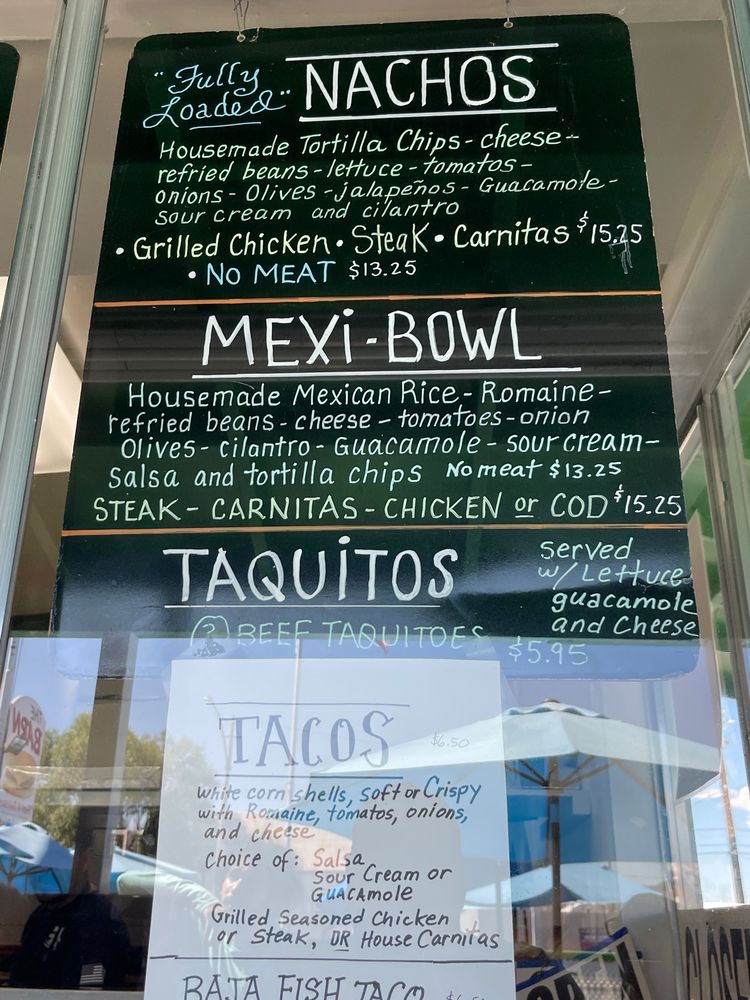 "Fully Loaded" NACHOS
Housemade Tortilla Chips - cheese -
refried beans - lettuce - tomatos -
onions - Olives - jalapeños - Guacamole -
sour cream and cilantro
• Grilled Chicken • Steak • Carnitas $15.25
• NO MEAT $13.25
MEXi-BOWL
Housemade Mexican Rice - Romaine -
refried beans - cheese - tomatoes - onion
Olives - cilantro - Guacamole - sour cream -
Salsa and tortilla chips No meat $13.25
STEAK - CARNITAS - CHICKEN or COD $15.25
TAQUiTOS
served
w/ Lettuce
guacamole
and Cheese
BEEF TAQUITOES $5.95
TACOS $6.50
white corn shells, soft or Crispy
with Romaine, tomatos, onions,
and cheese
choice of: Salsa
Sour Cream or
GUACAMOLE
Grilled Seasoned Chicken
or Steak, OR House Carnitas
BAJA FISH TACO
THE
BARN